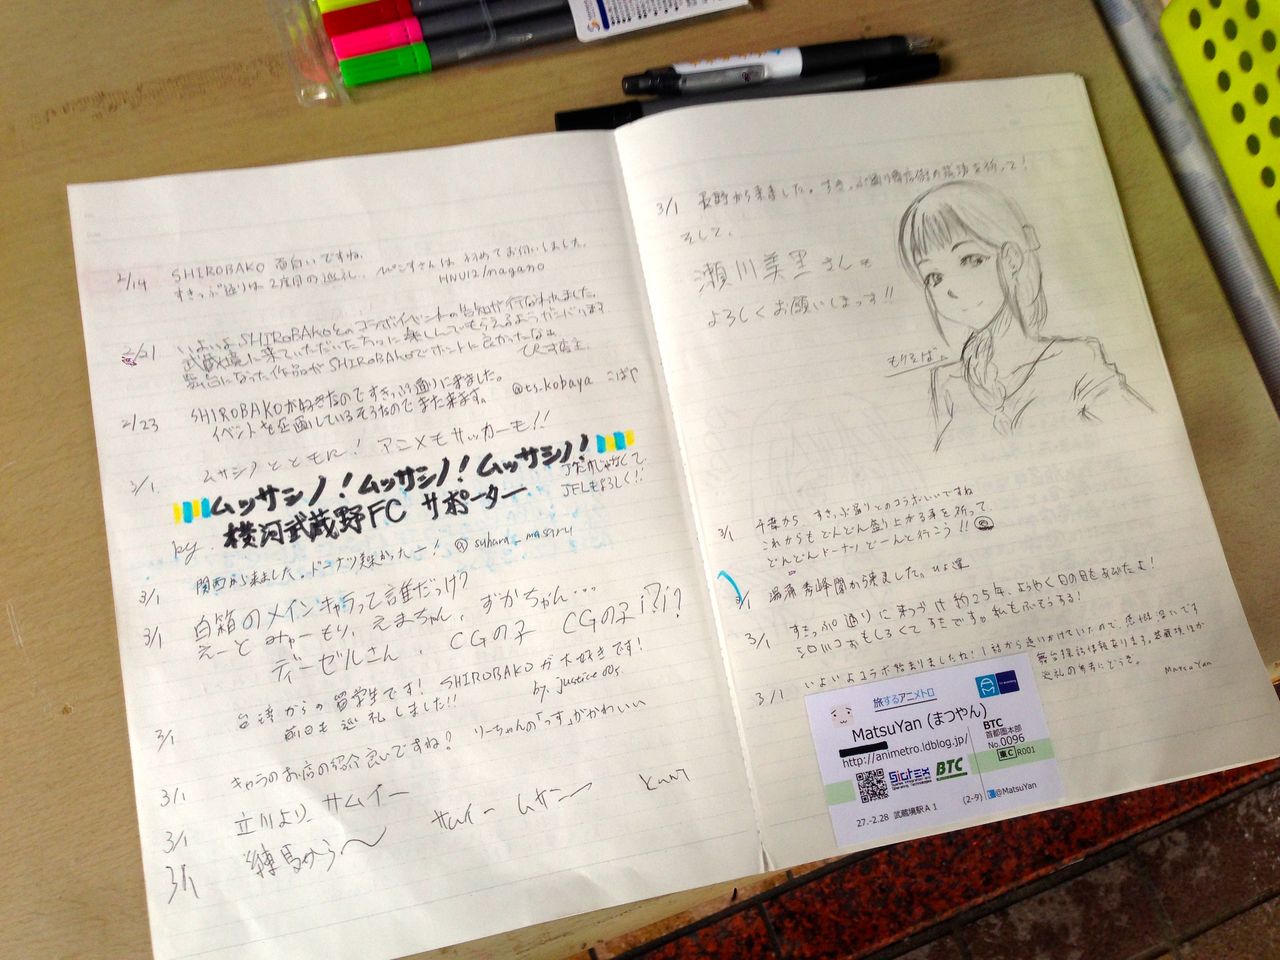 2/14 SHIROBAKO 面白いですね。
すきっぷ通りは2度目の巡礼。 さんは初めてお伺いしました。
HNU12/nagano
2/21 いよいよSHIROBAKOとのコラボイベントの告知が行なわれました。
武蔵境に来ていただいた方々に楽しんでもらえるようガンバります
舞台になった作品がSHIROBAKOでホントに良かったなぁ
店主
2/23 SHIROBAKOが好きなのですきっぷ通りに来ました。
イベントを企画しているそうなのでまた来ます。 @ts_kobaya こばや
3/1 ムサシノとともに! アニメもサッカーも!!
ムッサシノ!ムッサシノ!ムッサシノ!
by. 横河武蔵野FC サポーター
J だけじゃなくて
JFLもよろしく!!
3/1 関西から来ました。ドーナツ
3/1 白箱のメインキャラって誰だっけ?
えーと みゃーもり、えまちゃん、ずかちゃん…
ディーゼルさん、CGの子 CGの子!?!?
3/1 台湾からの留学生です! SHIROBAKOが大好きです!
前日も巡礼しました!! by. justice005.
3/1 キャラのお店の紹介良いですね? りーちゃんの「っす」がかわいい
3/1 立川より、サムイー
3/1 練馬から〜 サムイー ムサシノー
3/1 長野から来ました。すきっぷ通り商店街の発展を祈って!
そして、
瀬川美里さんも
よろしくお願いしまっす!!
もりそば
3/1 千葉から すきっぷ通りとのコラボいいですね
これからもどんどん盛り上がる事を祈って、
どんどんドーナツどーんと行こう!!
3/1 湯涌 から来ました。
3/1 すきっぷ通りに来つづけ約25年、ようやく日の目をあびたよ!
シロハコおもしろくてすきです。私もぶそうする!
3/1 いよいよコラボ始まりましたね! 1話から追いかけていたので、感慨深いです
舞台探訪 あります。武蔵境ほか
巡礼の参考にどうぞ。 MatsuYan
旅するアニメトロ
MatsuYan (まつやん)
http://animetro.ldblog.jp/
BTC
首都圏本部
No.0096
東C R001
BTC
27.-2.28 武蔵境駅A1 (2-タ) @MatsuYan